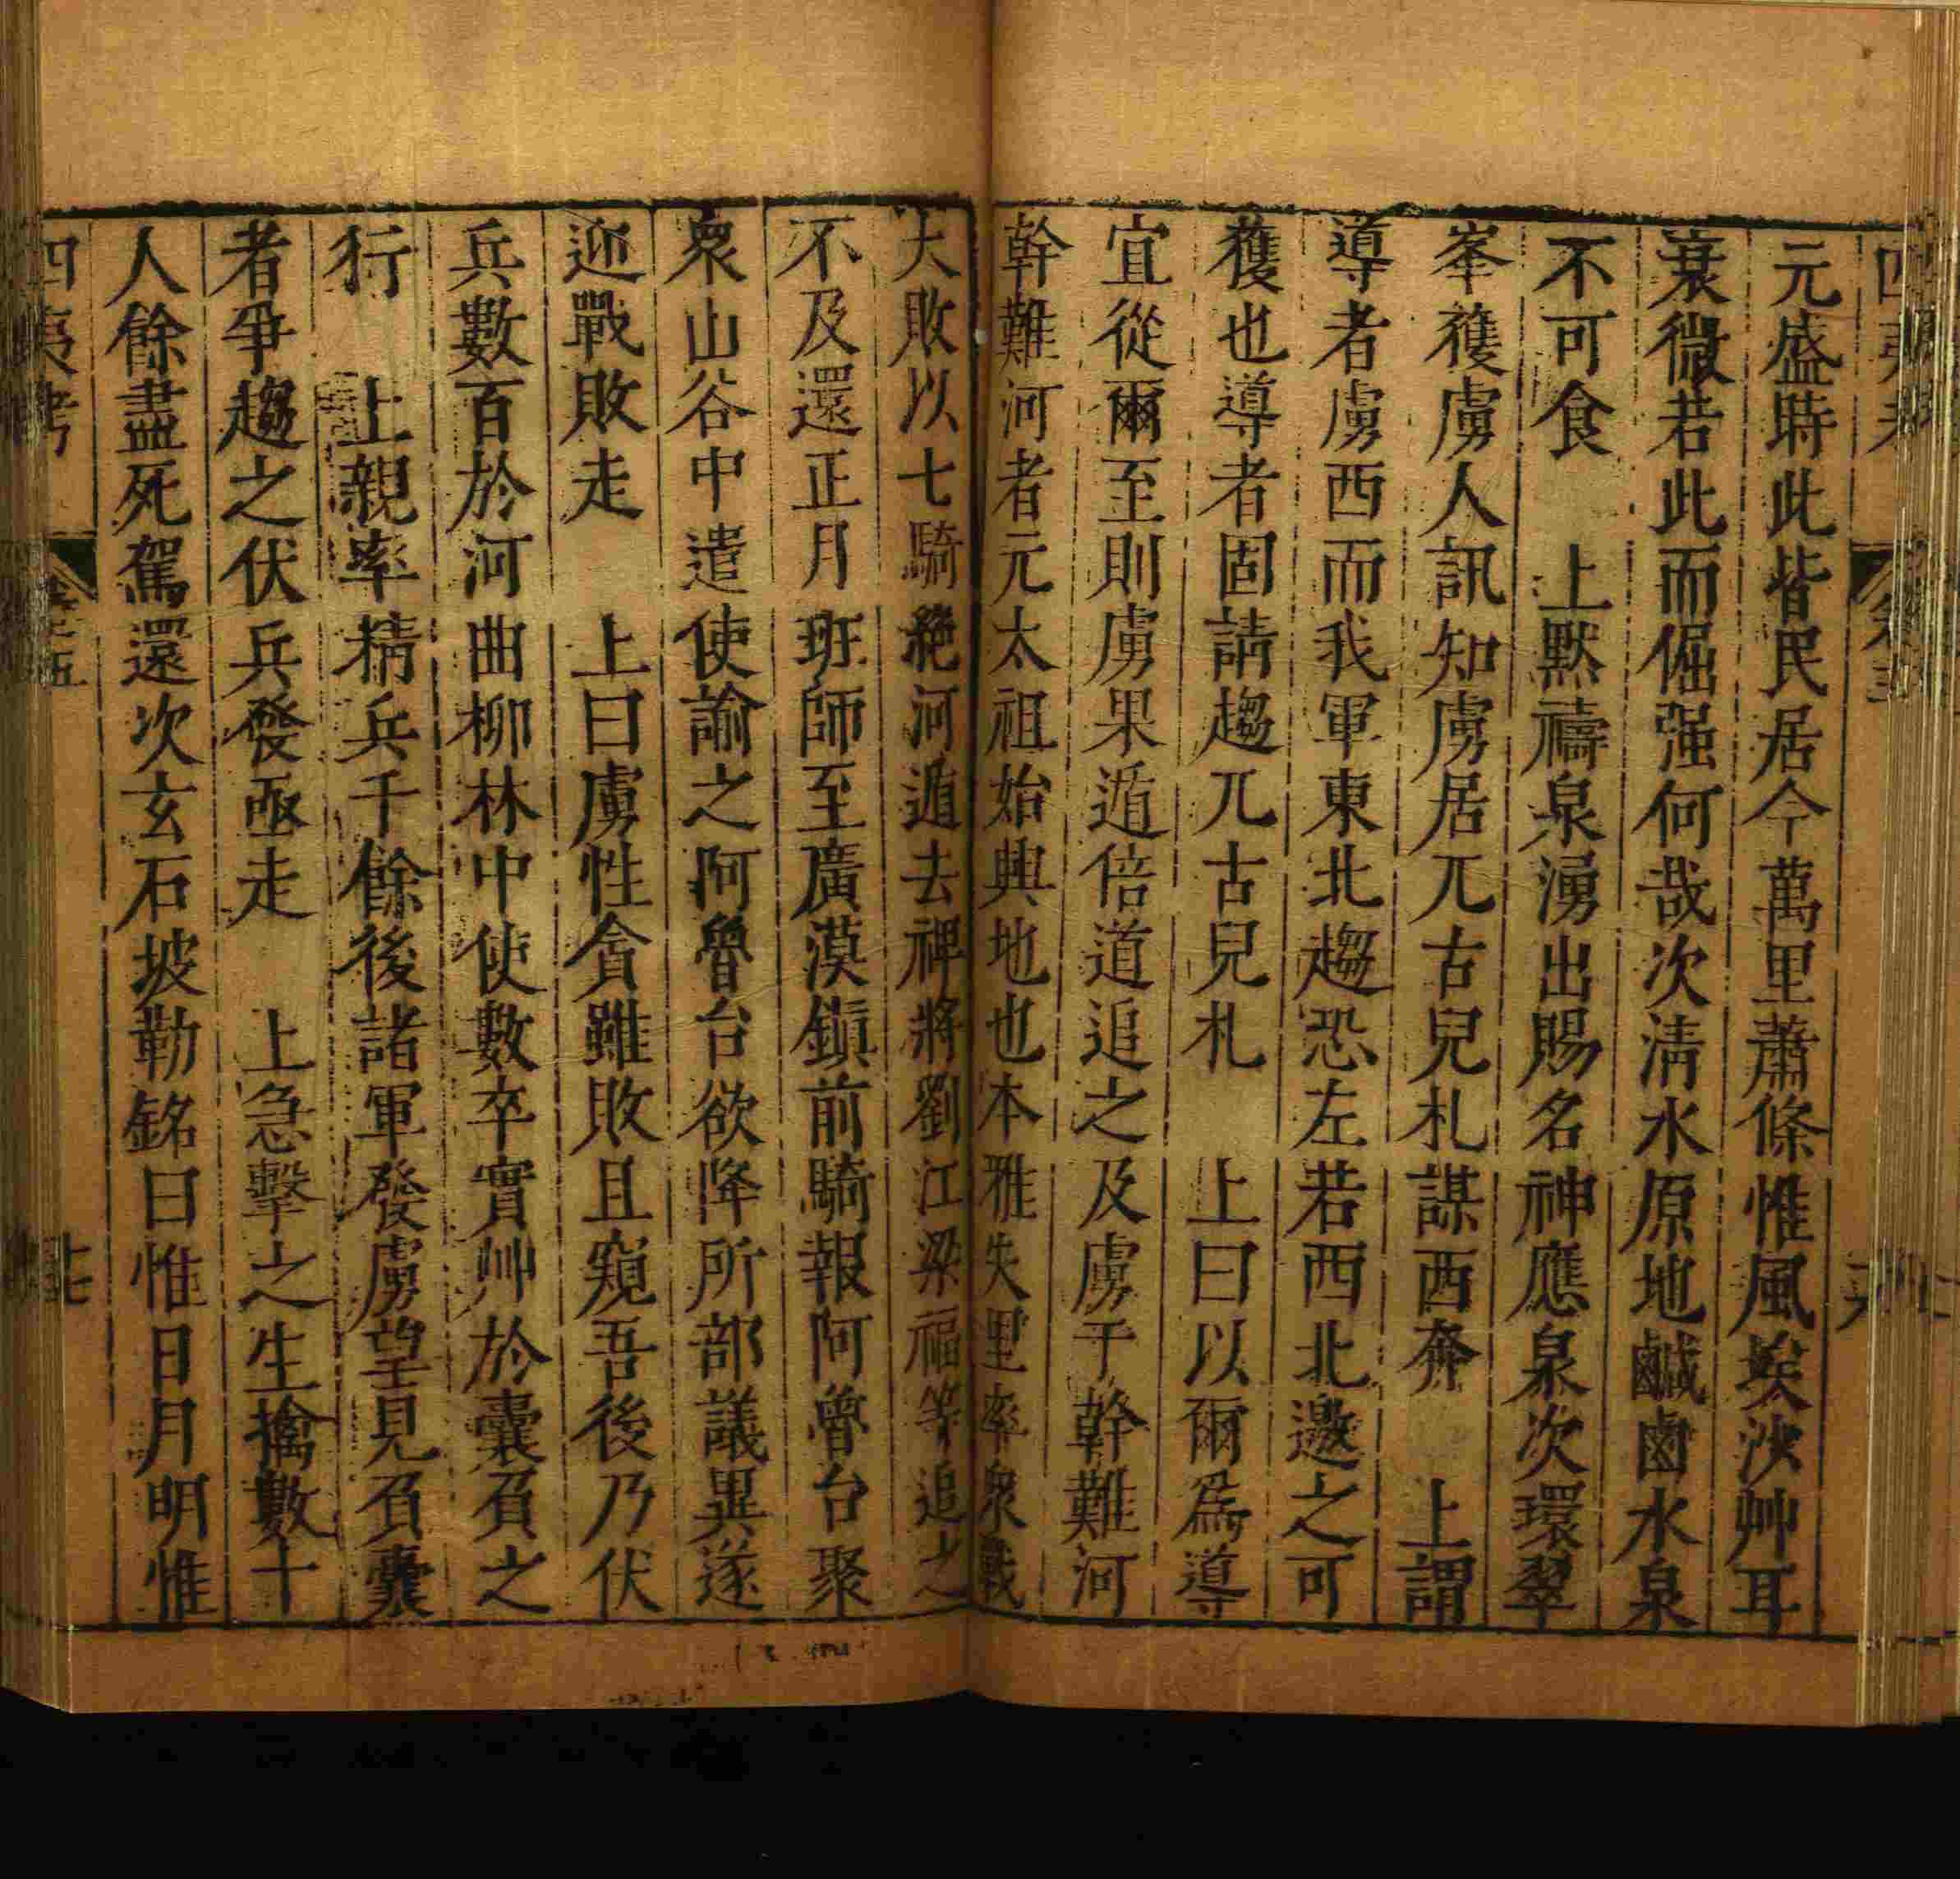 元盛時此皆民居今萬里蕭條惟風埃沙艸耳
衰微若此而倔强何哉次清水原地鹹鹵水泉
不可食　上默禱泉湧出賜名神應泉次環翠
峯獲虜人訊知虜居兀古兒札謀西奔　上謂
導者虜西而我軍東北趨恐左若西北邀之可
獲也導者固請趨兀古兒札　上曰以爾爲導
宜從爾至則虜果遁倍道追之及虜于幹難河
幹難河者元太祖始興地也本雅失里率衆戰
大敗以七騎絶河遁去裨將劉江梁福等追之
不及還正月班師至廣漠鎭前騎報阿魯台聚
衆山谷中遣使諭之阿魯台欲降所部議異遂
迎戰敗走　上曰虜性貪雖敗且窺吾後乃伏
兵數百於河曲柳林中使數卒實艸於囊負之
行　上親率精兵千餘後諸軍發虜望見負囊
者爭趨之伏兵發亟走　上急擊之生擒數十
人餘盡死駕還次玄石坡勒銘曰惟日月明惟
四夷考　卷之五　七